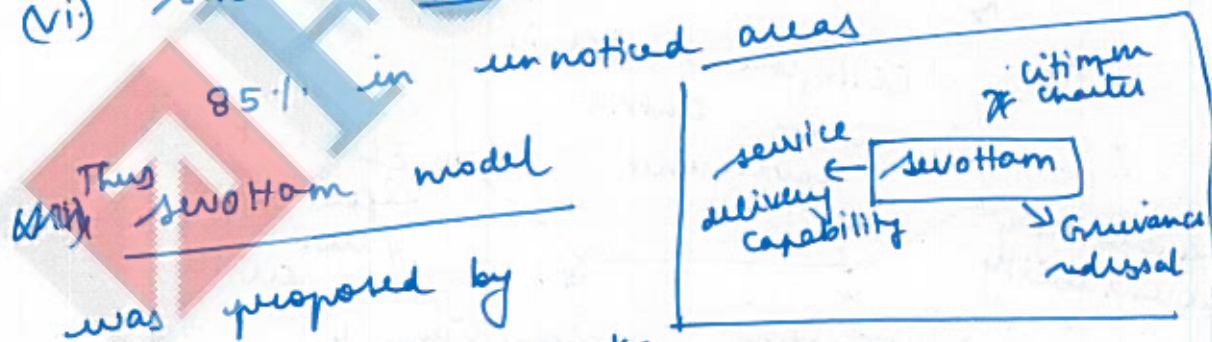 (vi)
85% in unnoticed areas
Thus sevottam model
was proposed by
citizen
charter
service
delivery
capability
sevottam
Grievance
redressal